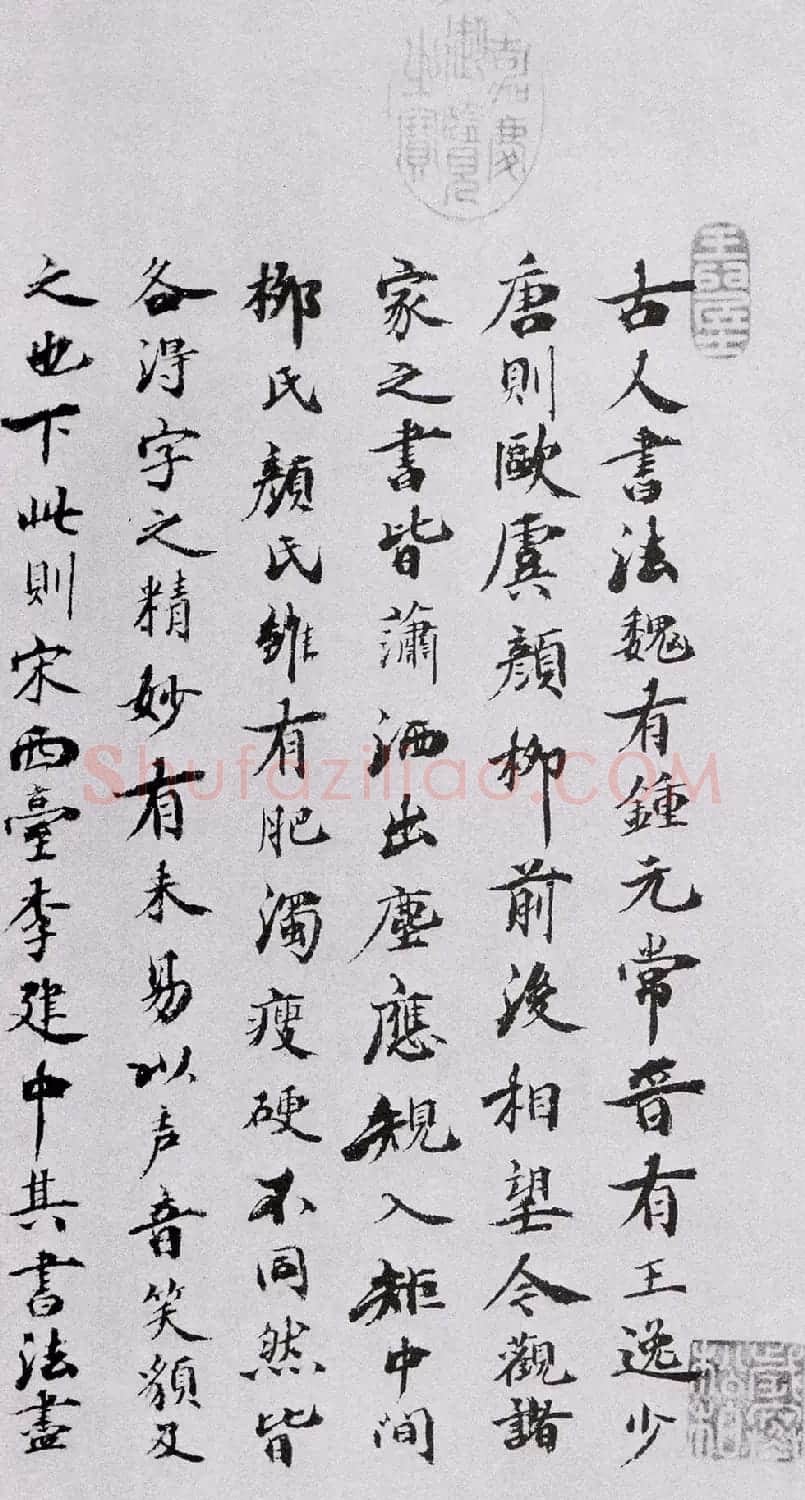 古人書法魏有鍾元常晉有王逸少
唐則歐虞顏柳前後相望今觀諸
家之書皆蕭洒出塵應規入矩中間
柳氏顏氏雖有肥濁瘦硬不同然皆
各得字之精妙有未易以声音笑貌及
之也下此則宋西臺李建中其書法盡
嘉慶御覽之寶
Shufaziliao.COM